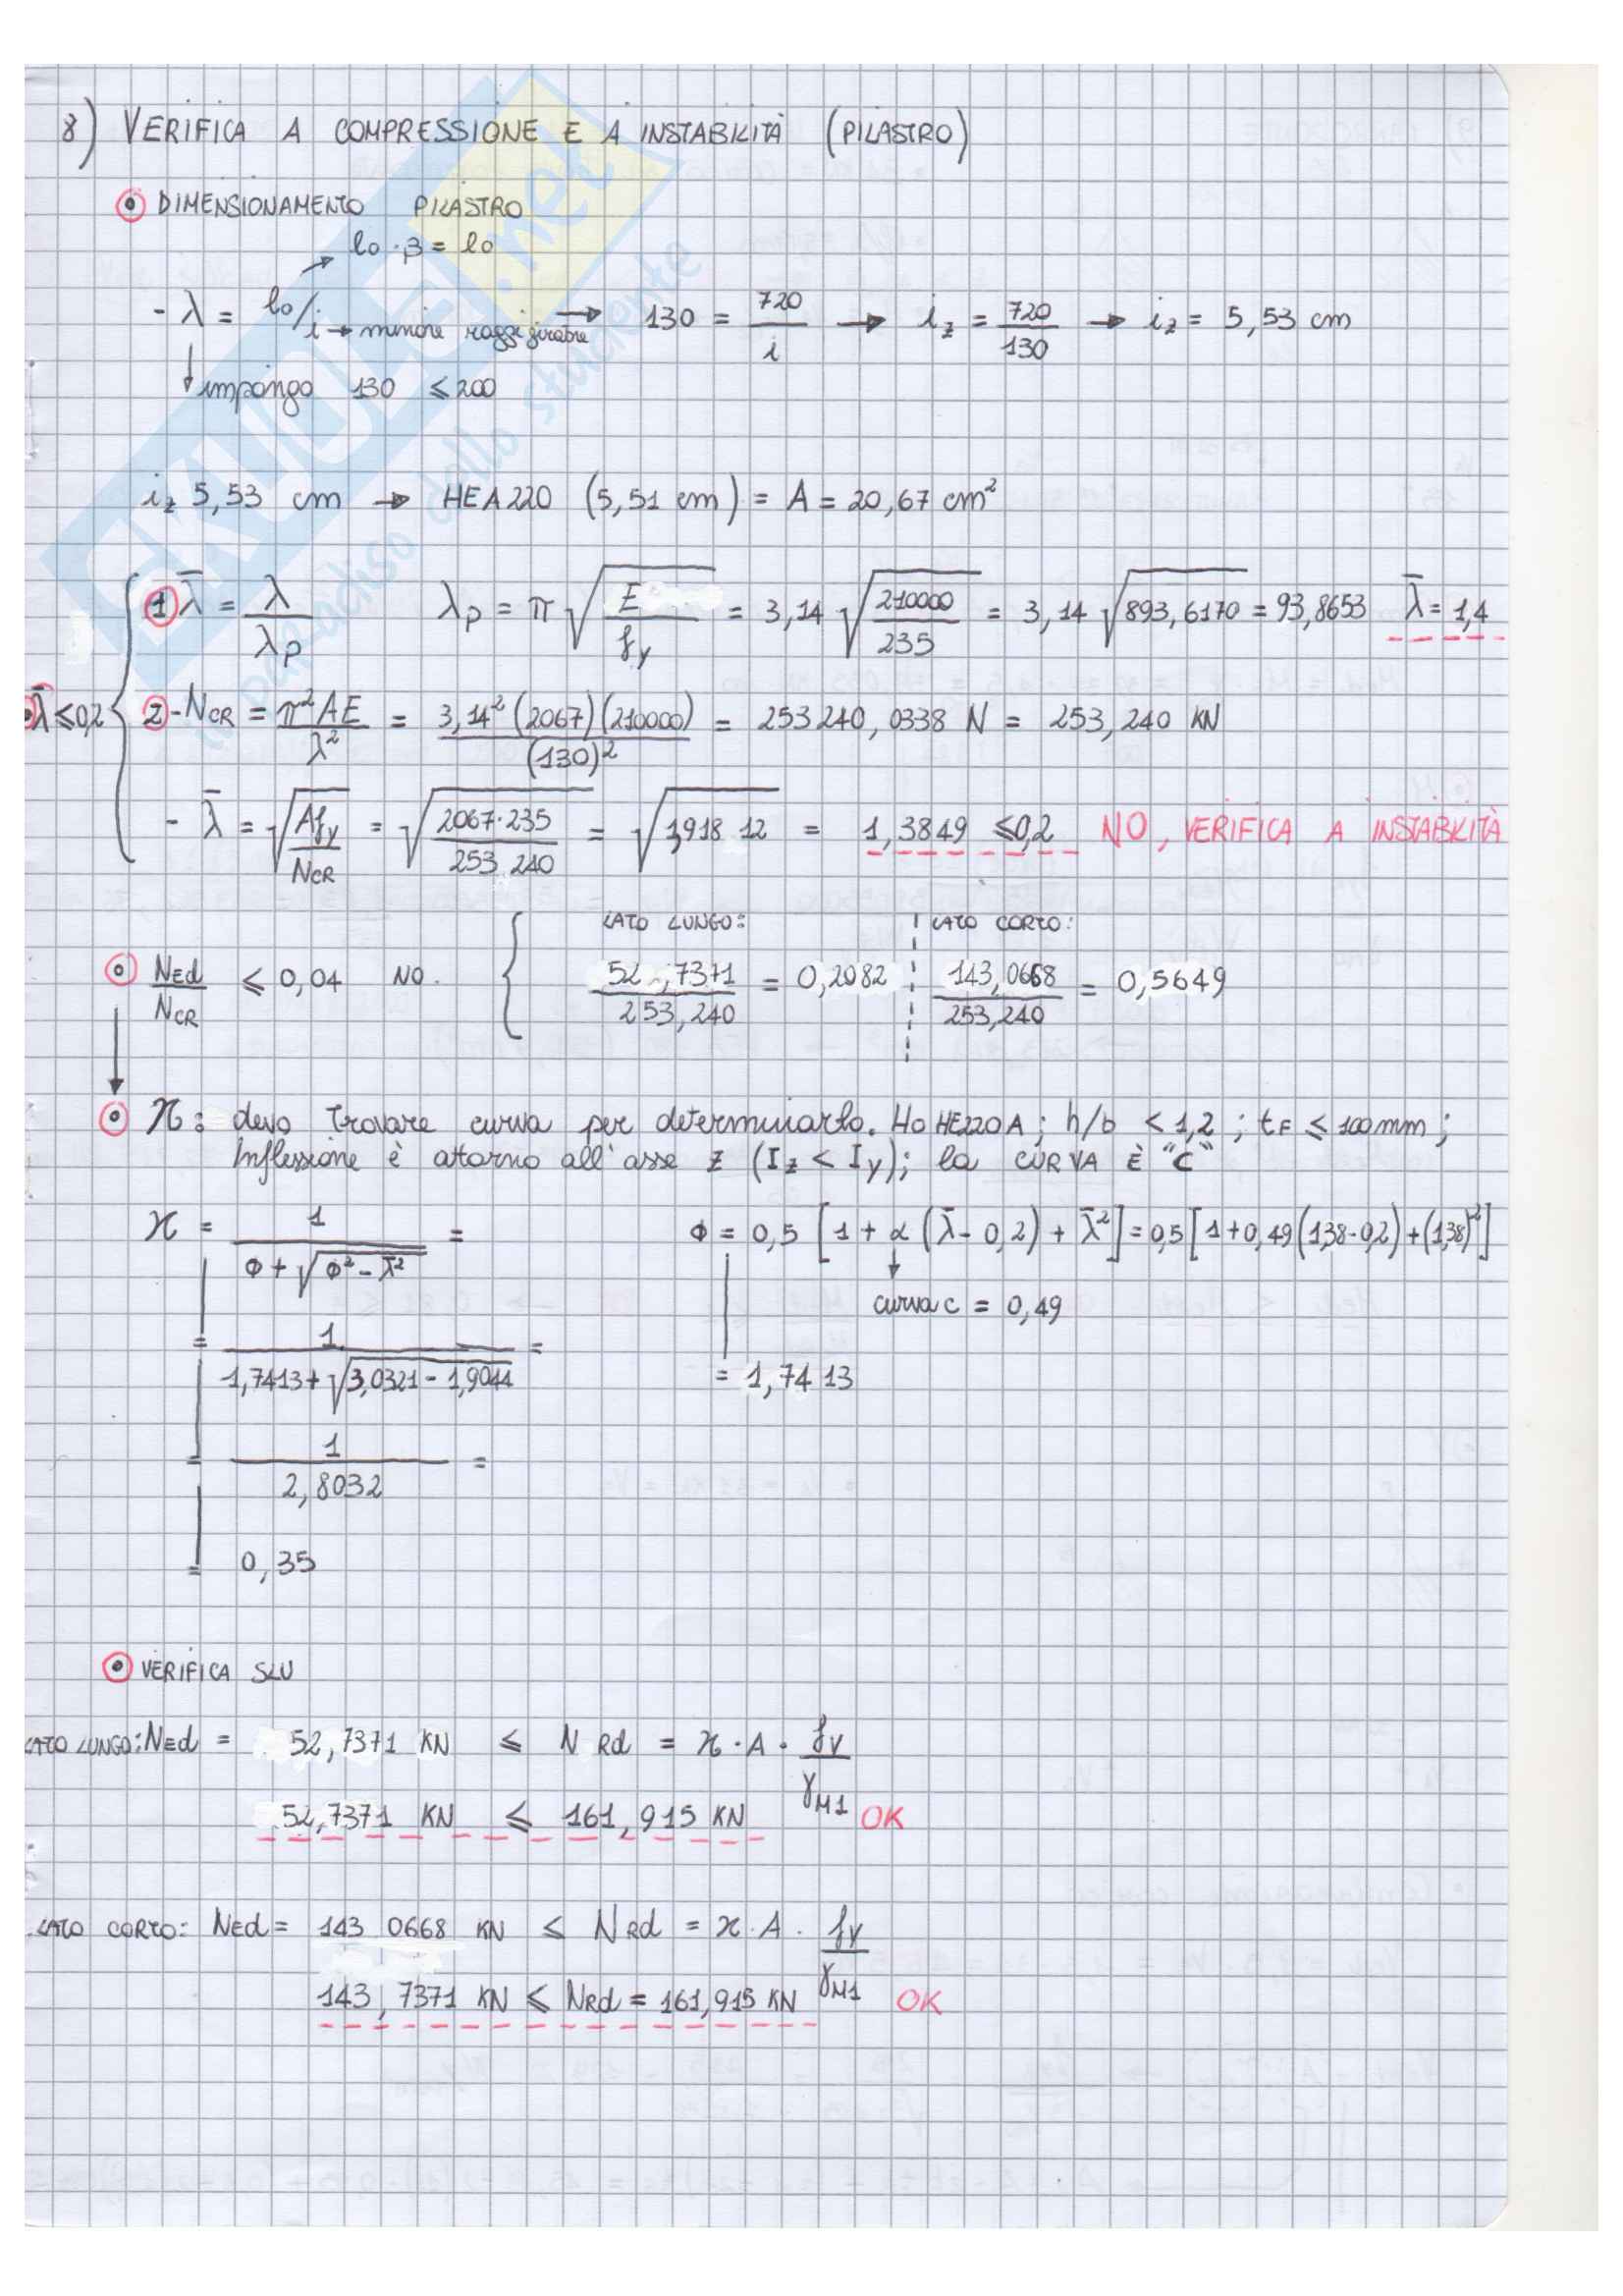 8) VERIFICA A COMPRESSIONE E A INSTABILITÀ (PILASTRO)
DIMENSIONAMENTO PILASTRO
lo · β = lo
- λ = lo/i → minore raggi girabre → 130 = 720/i → iz = 720/130 → iz = 5,53 cm
impongo 130 ≤ 200
iz 5,53 cm → HEA220 (5,51 cm) = A = 20,67 cm²
1 λ̄ = λ/λp λp = π √(E/fy) = 3,14 √(210000/235) = 3,14 √893,6170 = 93,8653 λ̄ = 1,4
λ̄ ≤ 0,2 { 2 - NCR = π²AE/λ² = 3,14² (2067)(210000)/(130)² = 253240,0338 N = 253,240 KN
- λ̄ = √(Afy/NCR) = √(2067·235/253,240) = √1,918 12 = 1,3849 ≤ 0,2 NO, VERIFICA A INSTABILITÀ
LATO LUNGO: LATO CORTO:
NEd/NCR ≤ 0,04 NO. { 52,7371/253,240 = 0,2082 143,0668/253,240 = 0,5649
ϰ: devo trovare curva per determinarlo. Ho HE220A; h/b < 1,2; tF ≤ 100mm;
Inflessione è atorno all'asse z (Iz < Iy); la CURVA È "C"
ϰ = 1/(Φ + √(Φ² - λ̄²)) = Φ = 0,5 [1 + α (λ̄ - 0,2) + λ̄²] = 0,5 [1 + 0,49 (1,38 - 0,2) + (1,38)²]
curva c = 0,49
= 1/(1,7413 + √(3,0321 - 1,9044)) = = 1,7413
= 1/2,8032 =
= 0,35
VERIFICA SLU
LATO LUNGO: NEd = 52,7371 KN ≤ N Rd = ϰ · A · fy/γM1
52,7371 KN ≤ 161,915 KN OK
LATO CORTO: NEd = 143 0668 KN ≤ NRd = ϰ · A · fy/γM1
143,7371 KN ≤ NRd = 161,915 KN OK
SKUOLA.net
il paradiso dello studente